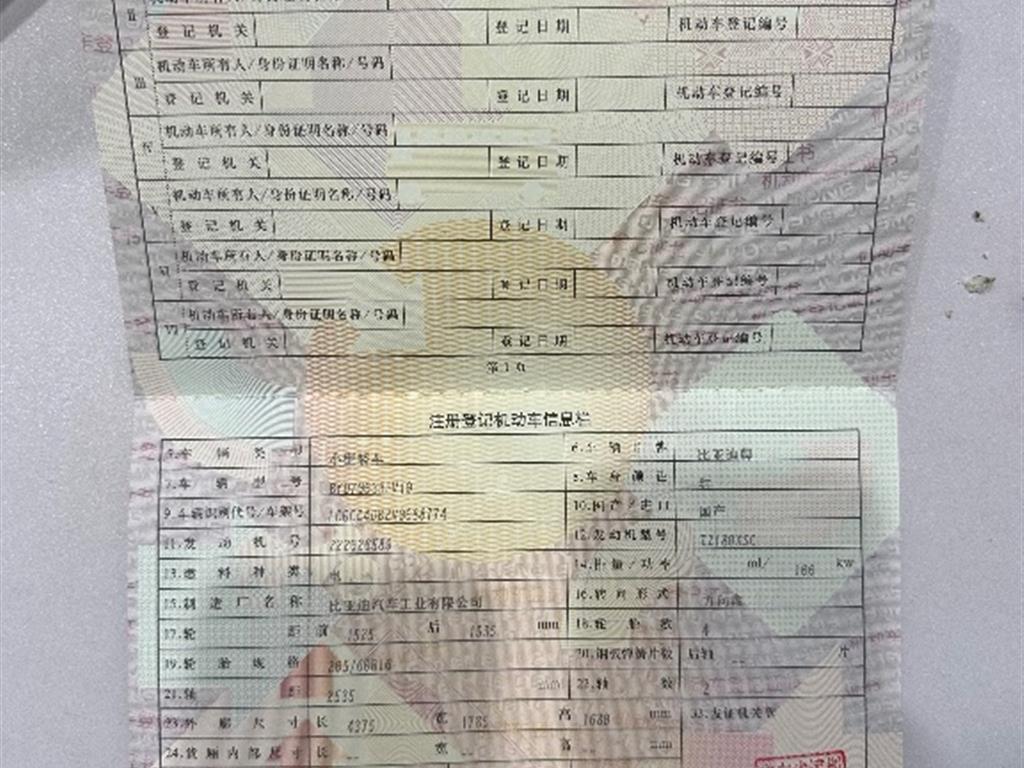 登记机关 登记日期 机动车登记编号
III 机动车所有人/身份证明名称/号码
登记机关 登记日期 机动车登记编号
机动车所有人/身份证明名称/号码
登记机关 登记日期 机动车登记编号
V 机动车所有人/身份证明名称/号码
登记机关 登记日期 机动车登记编号
VI 机动车所有人/身份证明名称/号码
登记机关 登记日期 机动车登记编号
VII 机动车所有人/身份证明名称/号码
登记机关 登记日期 机动车登记编号
第1页
注册登记机动车信息栏
5.车辆类型 小型轿车 6.车辆品牌 比亚迪牌
7.车辆型号 8.车身颜色 红
9.车辆识别代号/车架号 10.国产/进口 国产
11.发动机号 12.发动机型号 TZ180XSC
13.燃料种类 电 14.排量/功率 ml/ kw
15.制造厂名称 比亚迪汽车工业有限公司 16.转向形式 方向盘
17.轮距 前 1525 后 1535 mm 18.轮胎数 4
19.轮胎规格 205/60R16 20.钢板弹簧片数 后轴 -- 片
21.轴距 2535 mm 22.轴数 2
23.外廓尺寸 长 4375 宽 1785 高 1680 mm 33.发证机关章
24.货厢内部尺寸 长 -- 宽 -- 高 -- mm